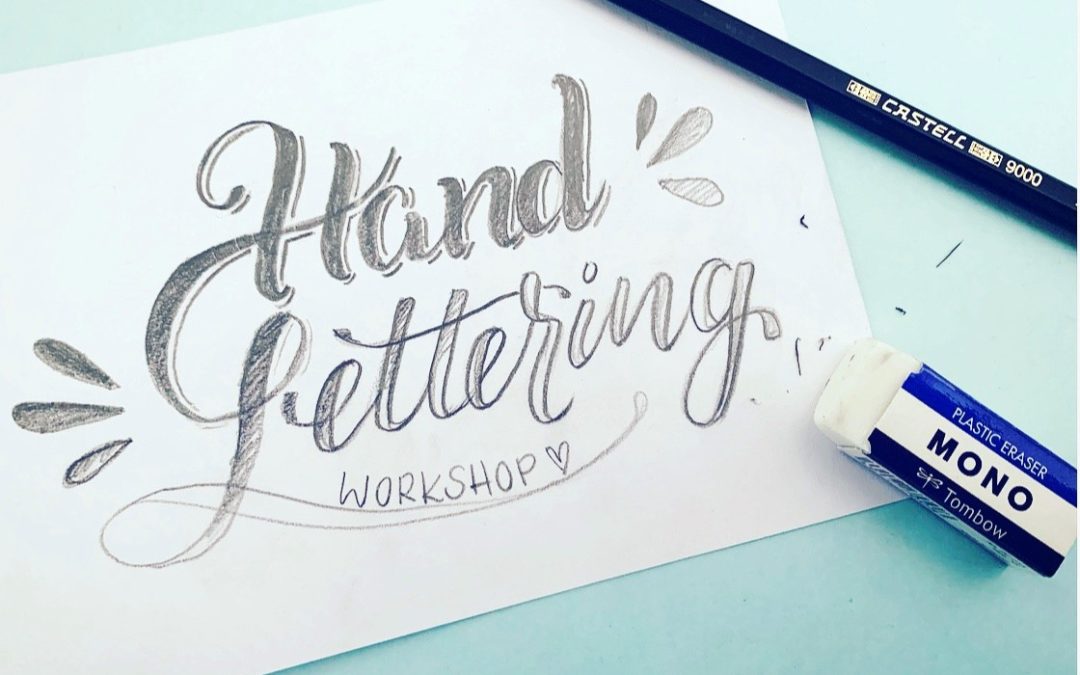 Hand
Lettering
WORKSHOP♡
CASTELL 9000
PLASTIC ERASER
MONO
Tombow